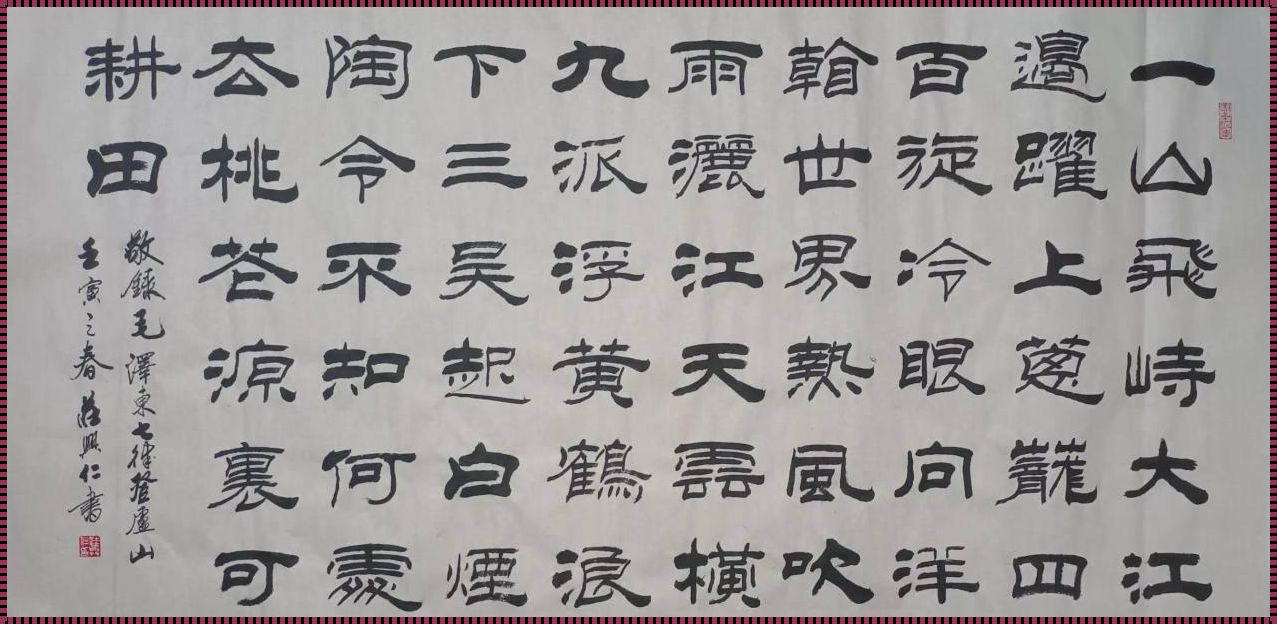 一山飛峙大江
邊躍上蔥蘢四
百旋冷眼向洋
翰世界熱風吹
雨灑江天雲橫
九派浮黃鶴浪
下三吳起白煙
陶令不知何處
去桃花源裏可
耕田
敬錄毛澤東七律登廬山
壬寅之春 莊興仁書